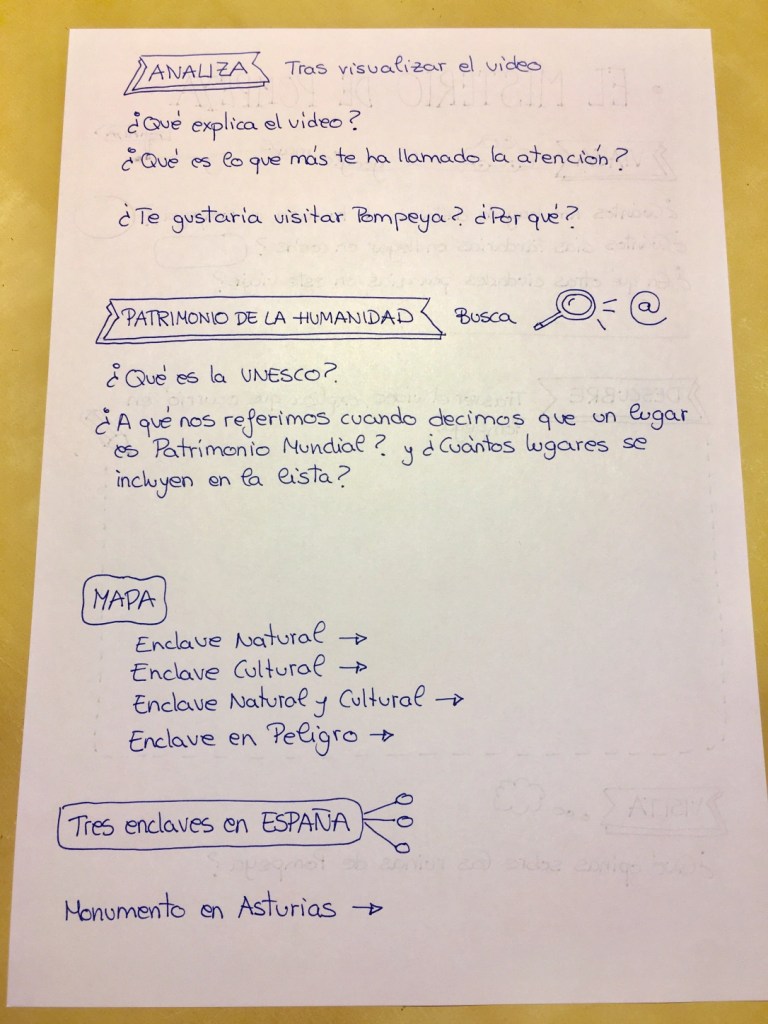 ANALIZA Tras visualizar el video
¿Qué explica el video?
¿Qué es lo que más te ha llamado la atención?
¿Te gustaría visitar Pompeya? ¿Por qué?
PATRIMONIO DE LA HUMANIDAD Busca @
¿Qué es la UNESCO?
¿A qué nos referimos cuando decimos que un lugar
es Patrimonio Mundial? y ¿Cuántos lugares se
incluyen en la lista?
MAPA
Enclave Natural →
Enclave Cultural →
Enclave Natural y Cultural →
Enclave en Peligro →
Tres enclaves en ESPAÑA
Monumento en Asturias →